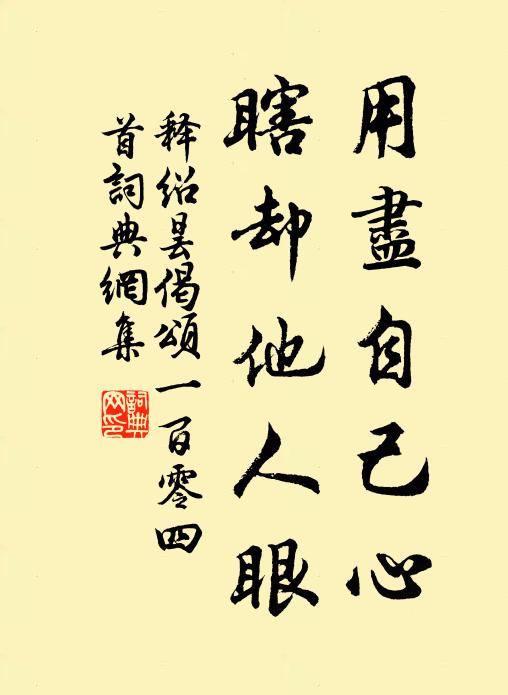 用盡自己心
瞎却他人眼
释绍昙偈頌一百零四
首詞典網集
詞典网印